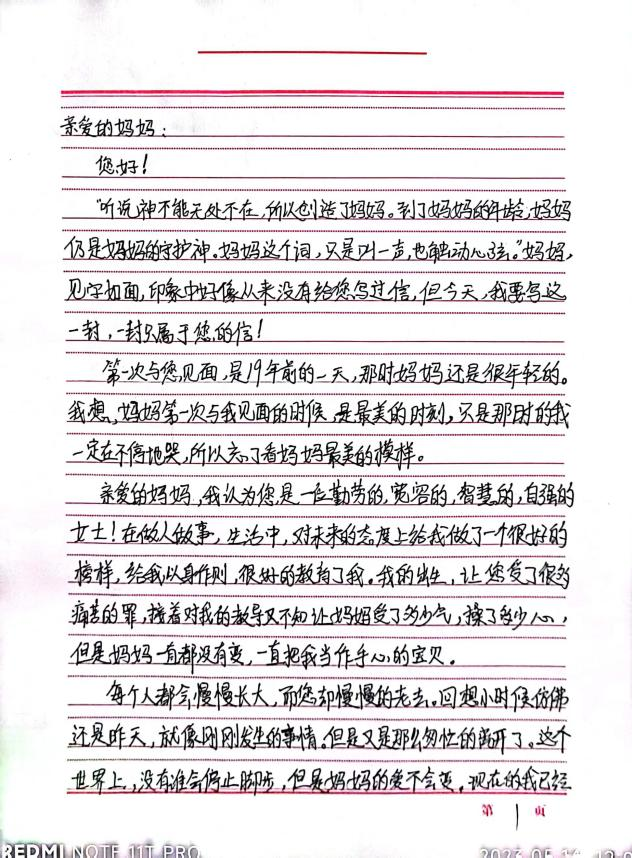 亲爱的妈妈:
您好!
"听说,神不能无处不在,所以创造了妈妈。到了妈妈的年龄,妈妈
仍是妈妈的守护神。妈妈这个词,只是叫一声,也触动心弦。"妈妈,
见字如面,印象中好像从来没有给您写过信,但今天,我要写这
一封,一封只属于您的信!
第一次与您见面,是19年前的一天,那时妈妈还是很年轻的。
我想,妈妈第一次与我见面的时候,是最美的时刻,只是那时的我
一定在不停地哭,所以忘了看妈妈最美的模样。
亲爱的妈妈,我认为您是一位勤劳的,宽容的,智慧的,自强的
女士!在做人做事,生活中,对未来的态度上给我做了一个很好的
榜样,给我以身作则,很好的教育了我。我的出生,让您受了很多
痛苦的罪,接着对我的教导又不知让妈妈受了多少气,操了多少心,
但是妈妈一直都没有变,一直把我当作手心的宝贝。
每个人都会慢慢长大,而您却慢慢的老去。回想小时候仿佛
还是昨天,就像刚刚发生的事情。但是又是那么匆忙的离开了。这个
世界上,没有谁会停止脚步,但是妈妈的爱不会变。现在的我已经
第 1 页
REDMI NOTE 11T PRO